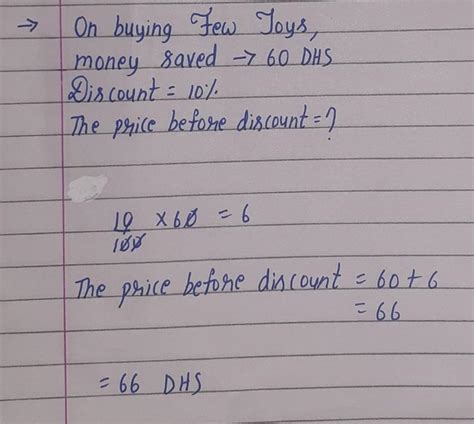 → On buying Few Toys,
money saved → 60 DHS
Discount = 10%
The price before discount = ?
10/100 × 60 = 6
The price before discount = 60 + 6
= 66
= 66 DHS